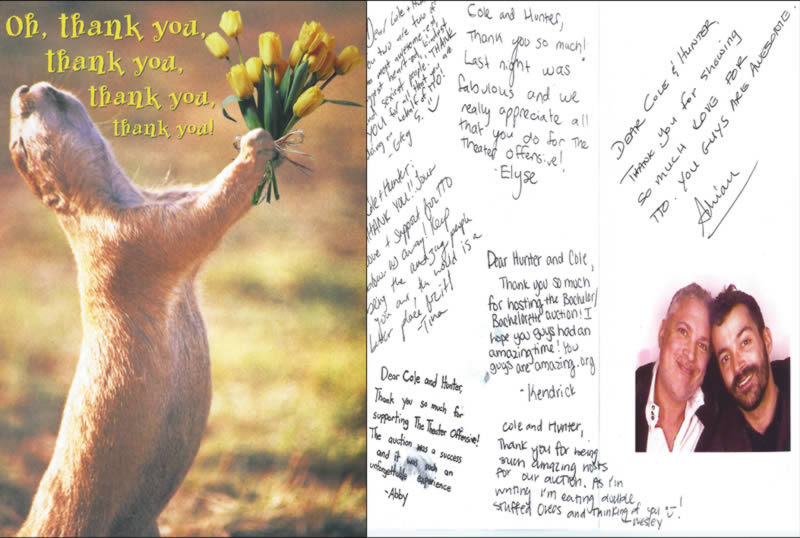 Oh, thank you,
thank you,
thank you,
thank you!
Dear Cole + Hunter
you two are two of
the most awesome,
THANK
YOU for all that you
- Greg
S.
Cole + Hunter:
THANK YOU!! Your
love + support for TTO
blow us away! Keep
being the amazing people
you are, the world is a
better place for it!
- Tina
Dear Cole and Hunter,
Thank you so much for
supporting The Theater Offensive!
The auction was a success
and it was such an
unforgettable experience
- Abby
Cole and Hunter,
Thank you so much!
Last night was
fabulous and we
really appreciate all
that you do for The
theater offensive!
- Elyse
Dear Hunter and Cole,
Thank you so much
for hosting the Bachelor/
Bachelorette auction! I
hope you guys had an
amazing time! You
guys are amazing.org
- Kendrick
Cole and Hunter,
Thank you for being
such amazing hosts
for our auction. As I'm
writing I'm eating double
stuffed Oreos and thinking of you!
- Wesley
DEAR COLE & HUNTER,
THANK YOU FOR SHOWING
SO MUCH LOVE FOR
TTO. YOU GUYS ARE AWESOME
Adrian